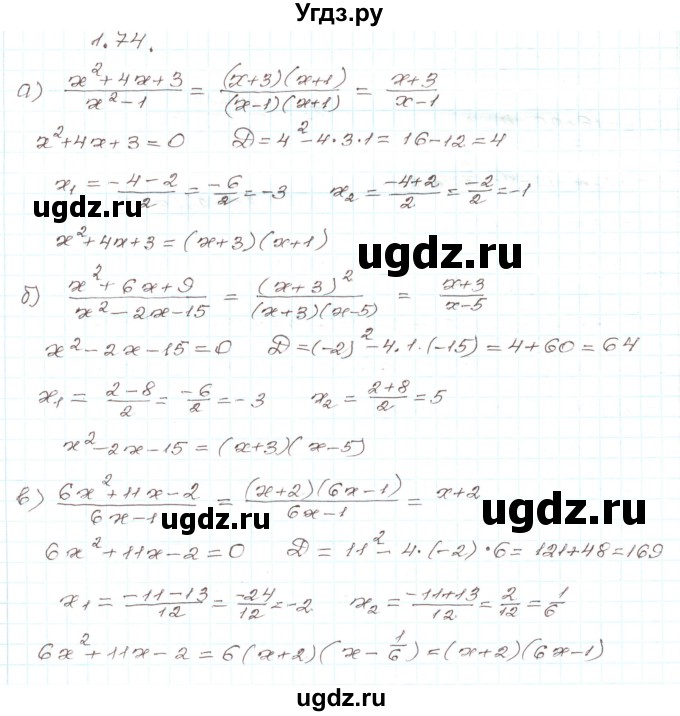 Угдз.ру
1.74.
а) (x²+4x+3)/(x²-1) = ((x+3)(x+1))/((x-1)(x+1)) = (x+3)/(x-1)
x²+4x+3=0 D=4²-4·3·1=16-12=4
x₁=(-4-2)/2=-6/2=-3 x₂=(-4+2)/2=-2/2=-1
ugdz.ru
ugdz.ru
x²+4x+3=(x+3)(x+1)
б) (x²+6x+9)/(x²-2x-15) = (x+3)²/((x+3)(x-5)) = (x+3)/(x-5)
x²-2x-15=0 D=(-2)²-4·1·(-15)=4+60=64
x₁=(2-8)/2=-6/2=-3 x₂=(2+8)/2=5
x²-2x-15=(x+3)(x-5)
в) (6x²+11x-2)/(6x-1) = ((x+2)(6x-1))/(6x-1) = x+2
ugdz.ru
ugdz.ru
6x²+11x-2=0 D=11²-4·(-2)·6=121+48=169
x₁=(-11-13)/12=-24/12=-2 x₂=(-11+13)/12=2/12=1/6
6x²+11x-2=6(x+2)(x-1/6)=(x+2)(6x-1)
ugdz.ru